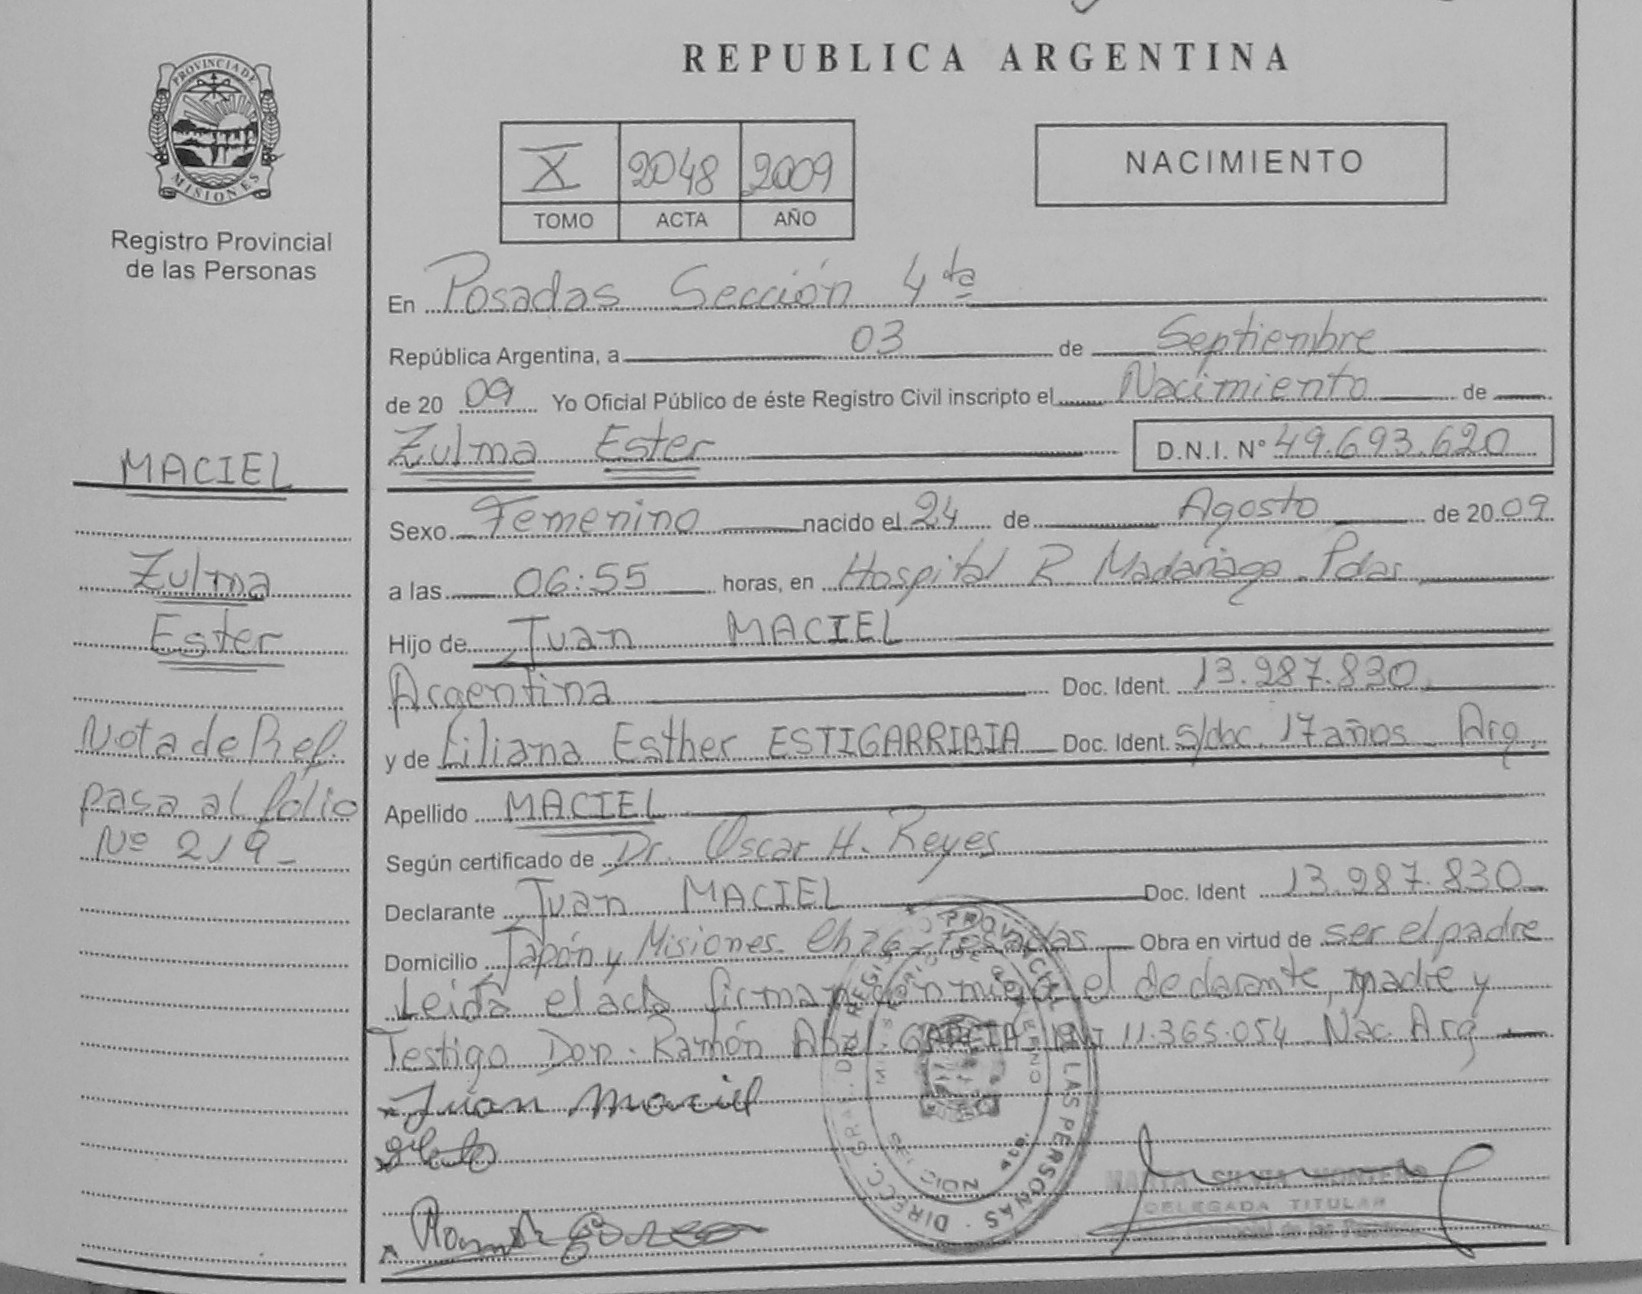 REPUBLICA ARGENTINA
PROVINCIA DE
MISIONES
Registro Provincial
de las Personas
X 2048 2009
TOMO ACTA AÑO
NACIMIENTO
En Posadas Sección 4ta
República Argentina, a 03 de Septiembre
de 2009 Yo Oficial Público de éste Registro Civil inscripto el Nacimiento de
Zulma Ester D.N.I. N° 49.693.620
Sexo Femenino nacido el 24 de Agosto de 2009
a las 06:55 horas, en Hospital R. Madariaga. Pdas
Hijo de Juan MACIEL
Argentina Doc. Ident. 13.987.830
y de Liliana Esther ESTIGARRIBIA Doc. Ident. s/doc. 17 años - Arg.
Apellido MACIEL
Según certificado de Dr. Oscar H. Reyes
Declarante Juan MACIEL Doc. Ident 13.987.830
Domicilio Japón y Misiones. Ch 26 - Posadas Obra en virtud de ser el padre
Leída el acta firman conmigo el declarante, madre y
Testigo Don. Ramón Abel GARCIA DNI 11.365.054 Nac. Arg
Juan Maciel
MACIEL
Zulma
Ester
Nota de Ref.
pasa al folio
Nº 219-
DELEGADA TITULAR